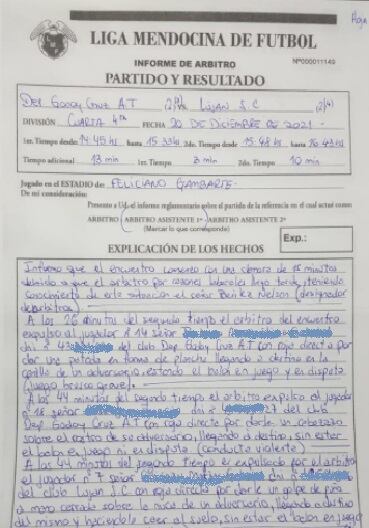 Hoja
LIGA MENDOCINA DE FUTBOL
INFORME DE ARBITRO
Nº000011149
PARTIDO Y RESULTADO
Dep. Godoy Cruz A.T (2) Vs Luján S.C (2)
DIVISIÓN CUARTA 4ta FECHA 20 DE DICIEMBRE DE 2021
1er. Tiempo desde: 14:45 hs hasta 15:33 hs 2do. Tiempo desde: 15:48 hs hasta 16:43 hs
Tiempo adicional 13 min 1er. Tiempo 3 min 2do. Tiempo 10 min
Jugado en el ESTADIO de: FELICIANO GAMBARTE
De mi consideración:
Presento a Ud. el informe reglamentario sobre el partido de la referencia en el cual actué como:
ARBITRO ARBITRO ASISTENTE 1º ARBITRO ASISTENTE 2º
(Marcar lo que corresponde)
Exp.:
EXPLICACIÓN DE LOS HECHOS
Informo que el encuentro comenzó con una demora de 15 minutos
debido a que el árbitro por razones laborales llegó tarde, teniendo
conocimiento de esta situación el señor Benítez Nelson (designador
de árbitros).
A los 26 minutos del segundo tiempo el árbitro del encuentro
expulsó al jugador nº 14 señor
dni nº 43 del club Dep Godoy Cruz A.T con roja directa por
dar una patada en forma de plancha llegando a destino en la
canilla de un adversario, estando el balón en juego y en disputa
(juego brusco grave).
A los 44 minutos del segundo tiempo el árbitro expulsó al jugador
nº 16 señor dni nº 27 del club
Dep. Godoy Cruz A.T con roja directa por darle un cabezazo
sobre el rostro de su adversario, llegando a destino, sin estar
el balón en juego ni en disputa (conducta violenta).
A los 44 minutos del segundo tiempo es expulsado por el árbitro
el jugador nº 7 señor dni nº
del club Luján S.C con roja directa por darle un golpe de puño
a mano cerrada sobre la nuca de un adversario, llegando a destino
del mismo y haciéndole caer al suelo, sin estar el balón en juego